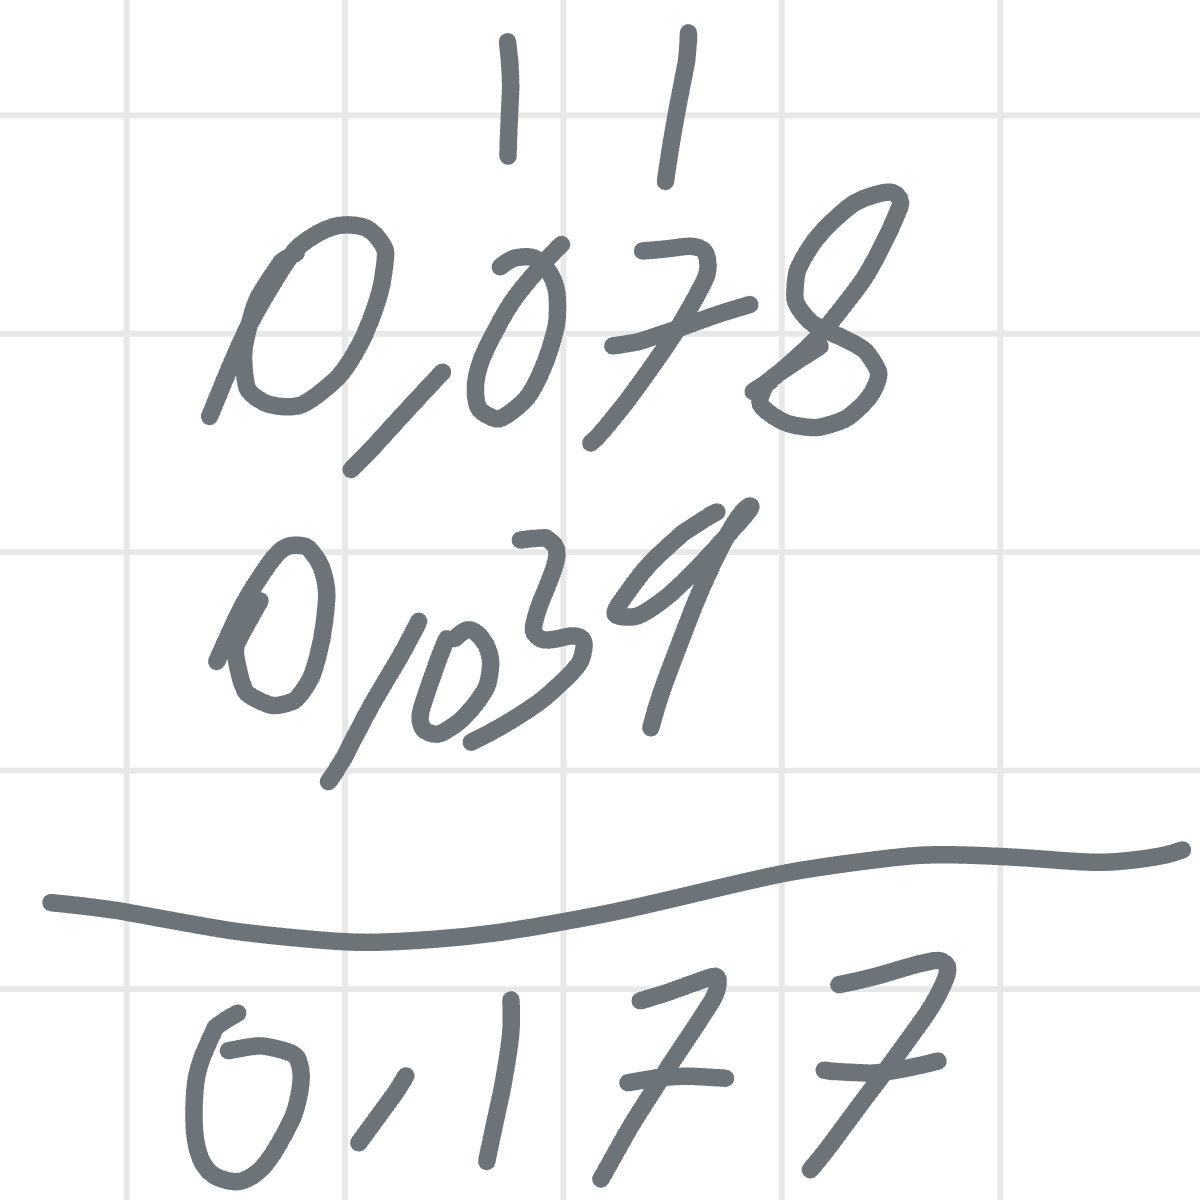 1 1
0,078
0,039
0,177